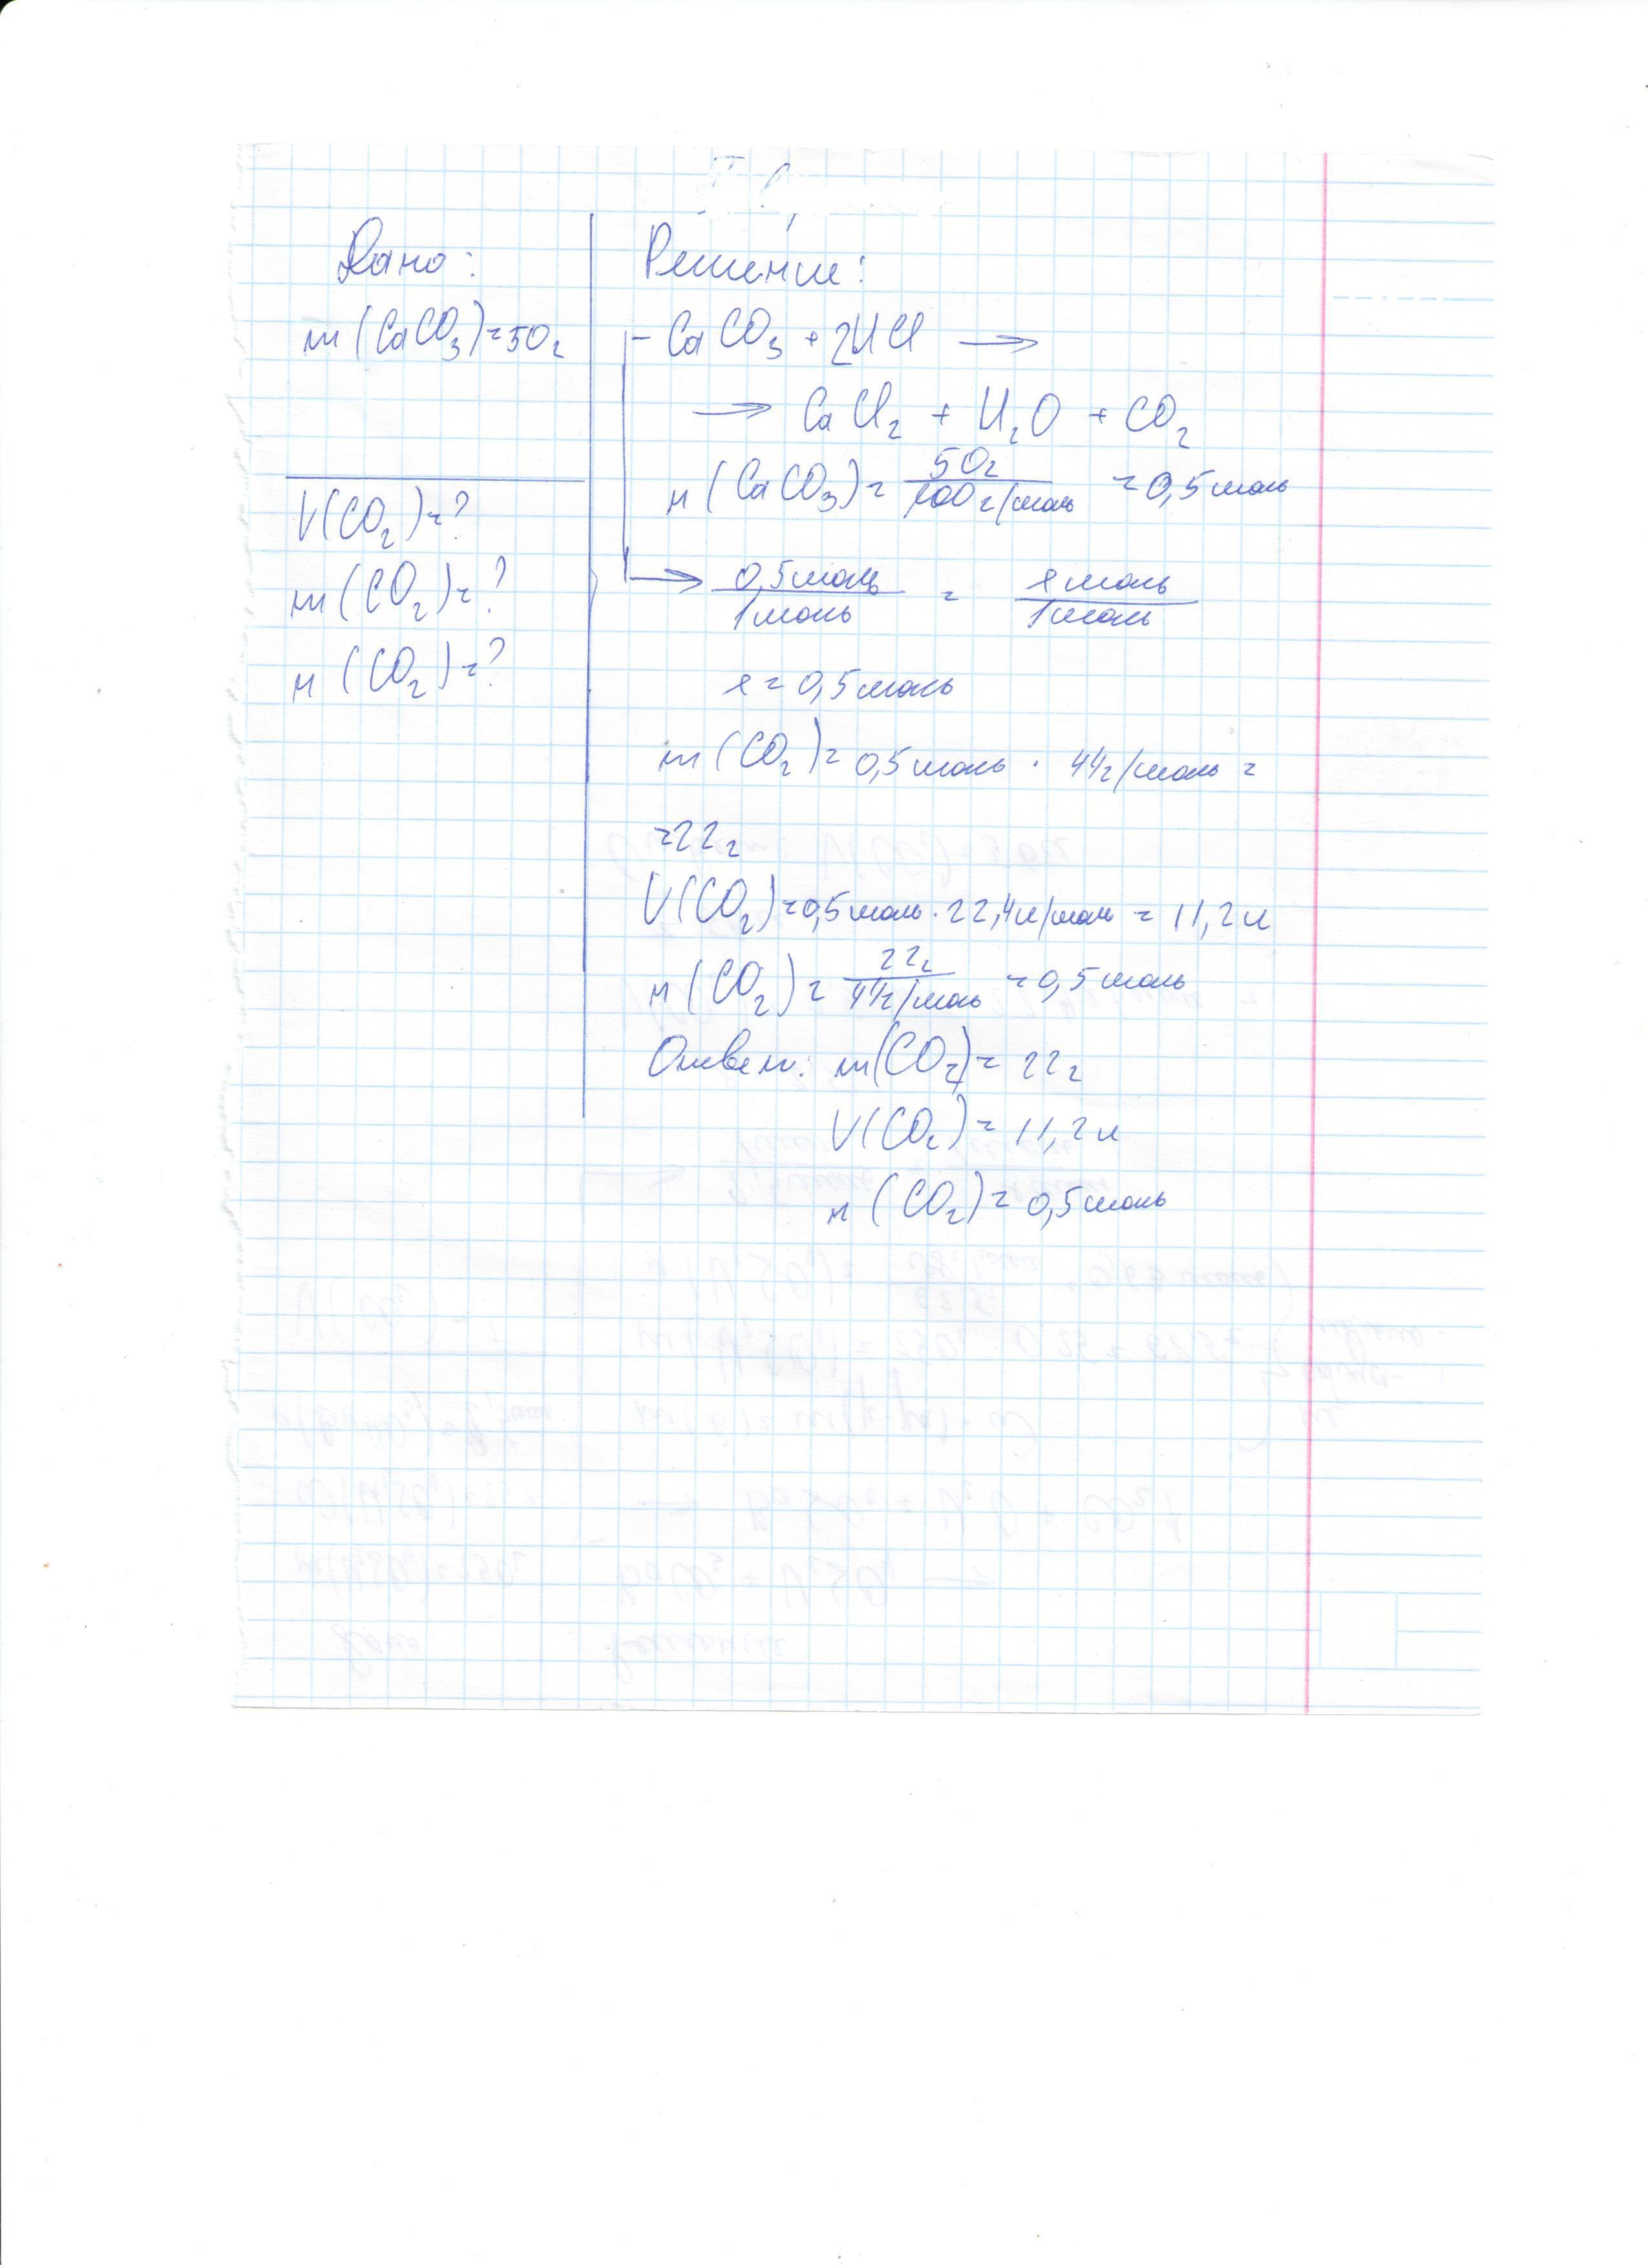 Дано:
m (CaCO₃) = 50 г
V(CO₂) = ?
m (CO₂) = ?
n (CO₂) = ?
Решение:
CaCO₃ + 2HCl →
→ CaCl₂ + H₂O + CO₂
n (CaCO₃) = 50г / 100 г/моль = 0,5 моль
→ 0,5 моль / 1 моль = x моль / 1 моль
x = 0,5 моль
m (CO₂) = 0,5 моль · 44 г/моль =
= 22 г
V(CO₂) = 0,5 моль · 22,4 л/моль = 11,2 л
n (CO₂) = 22г / 44г/моль = 0,5 моль
Ответ: m(CO₂) = 22 г
V(CO₂) = 11,2 л
n (CO₂) = 0,5 моль